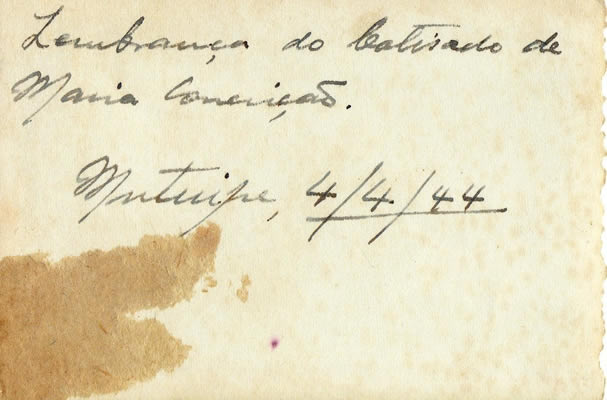 Lembrança do batisado de
Maria Conceição.
Mutuipe, 4/4/44